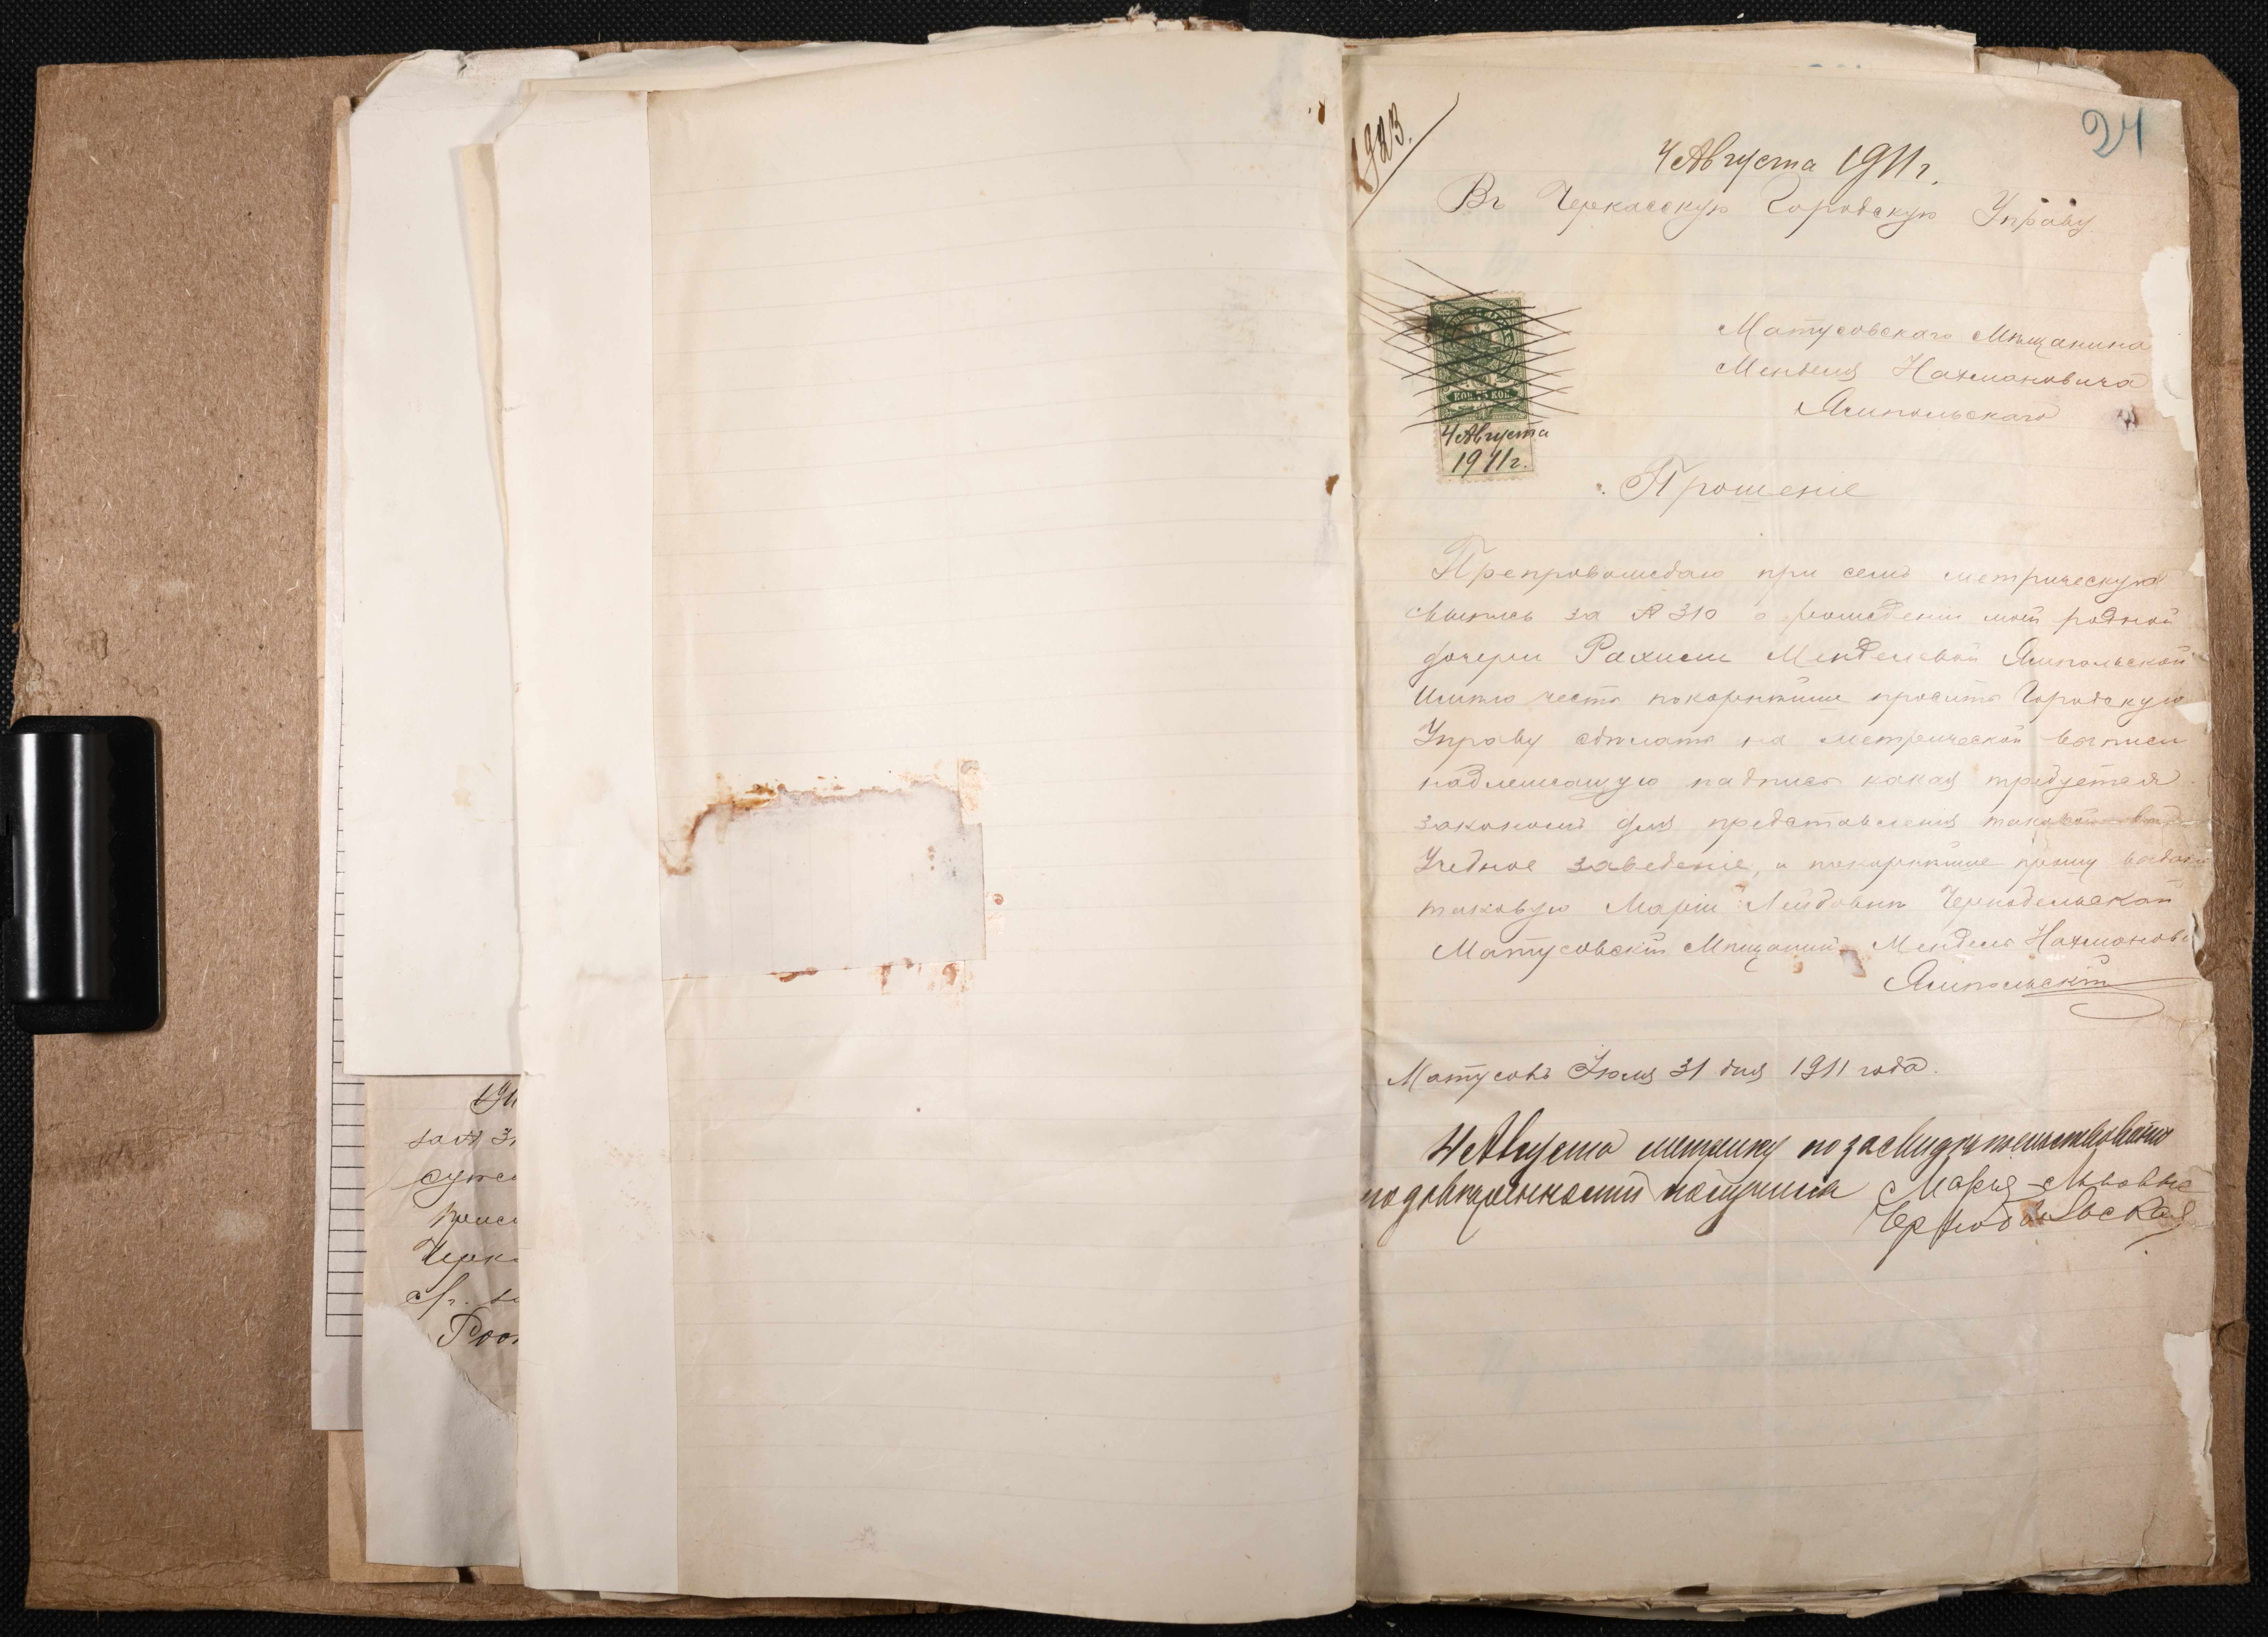 24
1923.
4 Августа 1911 г.
Въ Черкасскую Городскую Управу
Матусовскаго Мѣщанина
Менделя Нахмановича
Ямпольскаго
КОП. 75 КОП.
4 Августа
1911 г.
Прошеніе
Препровождаю при семъ метрическую
выпись за № 310 о рожденіи моей родной
дочери Рахили Менделевой Ямпольской
Имѣю честь покорнѣйше просить Городскую
Управу сдѣлать на метрической выписи
надлежащую надпись какая требуется
закономъ для представленія таковой въ
Учебное заведеніе, и покорнѣйше прошу выдать
таковую Маріи Лейбовнѣ Чернобельской
Матусовскій Мѣщанинъ Мендель Нахмановъ
Ямпольскій
Матусовъ Іюля 31 дня 1911 года.
4 Августа метрику по засвидѣтельствованію
по довѣренности получила Марья Львовна
Чернобыльская
191
за № 31
Черка